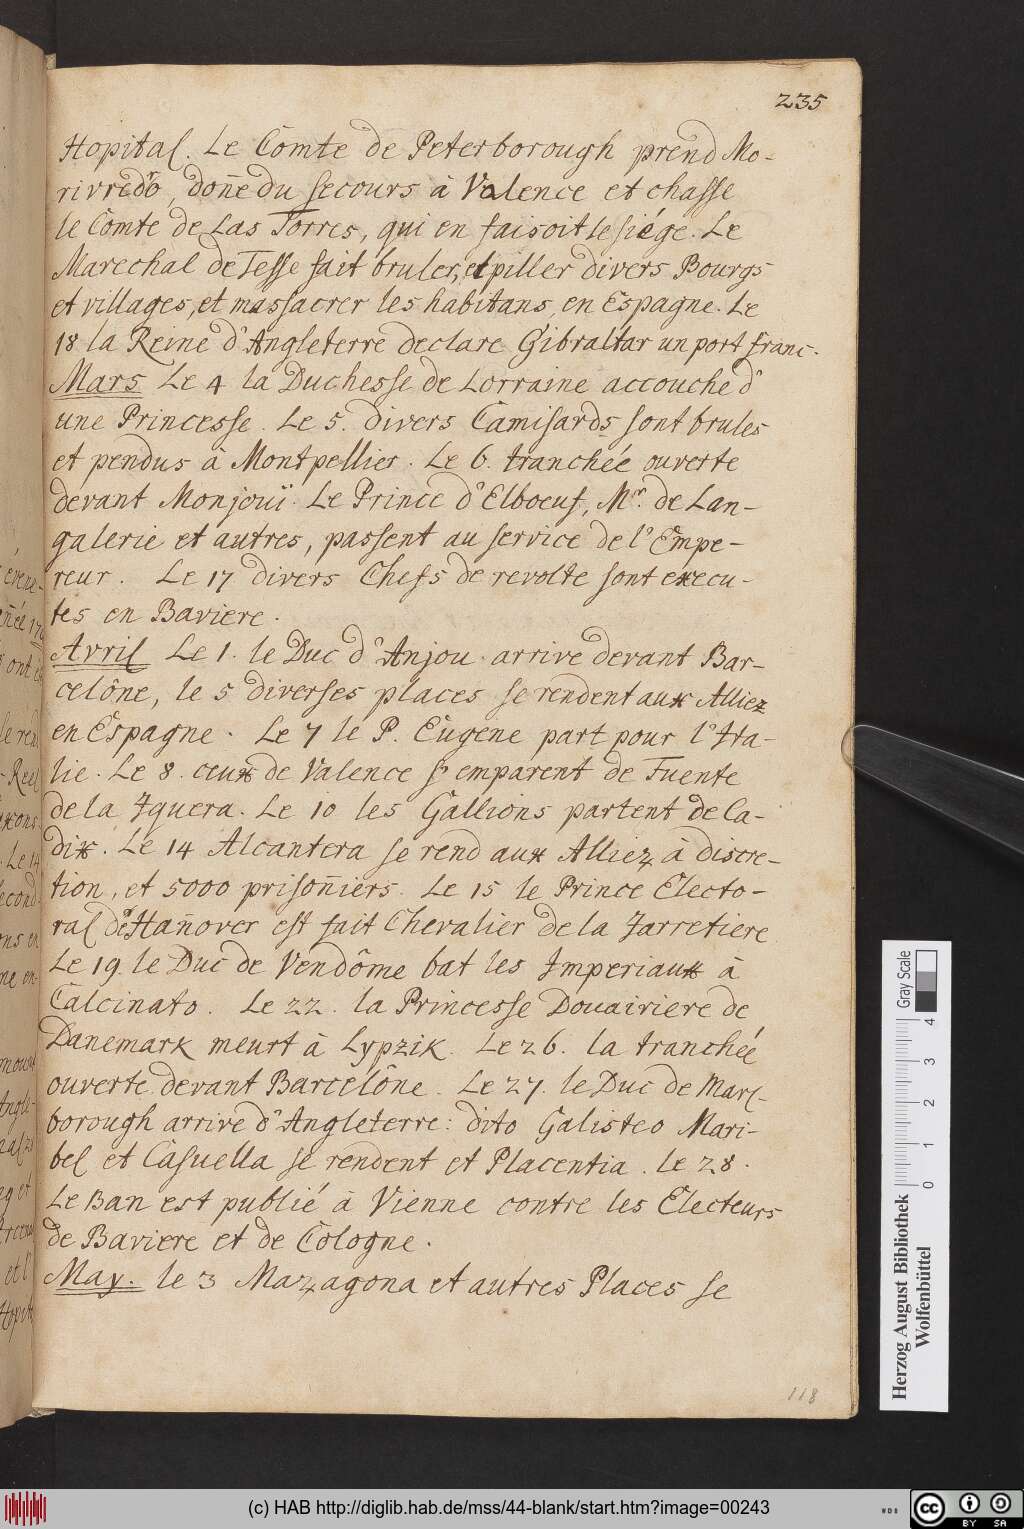 235
Hopital. Le Comte de Peterborough prend Mo-
rivredro, don̄e du secours à Valence et chasse
le Comte de Las Torres, qui en faisoit le siége. Le
Marechal de Tesse fait bruler, et piller divers Bourgs
et villages, et massacrer les habitans, en Espagne. Le
18 la Reine d'Angleterre declare Gibraltar un port franc.
Mars Le 4 la Duchesse de Lorraine accouche d'
une Princesse. Le 5. divers Camisards sont brules
et pendus à Montpellier. Le 6. tranchée ouverte
devant Monjouï. Le Prince d'Elboeuf, Mr. de Lan-
galerie et autres, passent au service de l'Empe-
reur. Le 17 divers Chefs de revolte sont execu-
tes en Baviere.
Avril Le 1. le Duc d'Anjou arrive devant Bar-
celône, le 5 diverses places se rendent aux Alliez
en Espagne. Le 7 le P. Eugene part pour l'Ita-
lie. Le 8. ceux de Valence s'emparent de Fuente
de la Iguera. Le 10 les Gallions partent de Ca-
dix. Le 14 Alcantera se rend aux Alliez à discre-
tion, et 5000 prison̄iers. Le 15 le Prince Electo-
ral de Han̄over est fait Chevalier de la Jarretiere
Le 19. le Duc de Vendôme bat les Imperiaux à
Calcinato. Le 22. la Princesse Douairiere de
Danemark meurt à Lypzik. Le 26. la tranchée
ouverte devant Barcelône. Le 27. le Duc de Marl-
borough arrive d'Angleterre: dito Galisteo Mari-
bel et Casuella se rendent et Placentia. le 28.
Le Ban est publié à Vienne contre les Electeurs
de Baviere et de Cologne.
May. le 3 Mazagona et autres Places se
118
Herzog August Bibliothek
Wolfenbüttel
0 1 2 3 4
Gray Scale
(c) HAB http://diglib.hab.de/mss/44-blank/start.htm?image=00243
WDB
cc BY SA